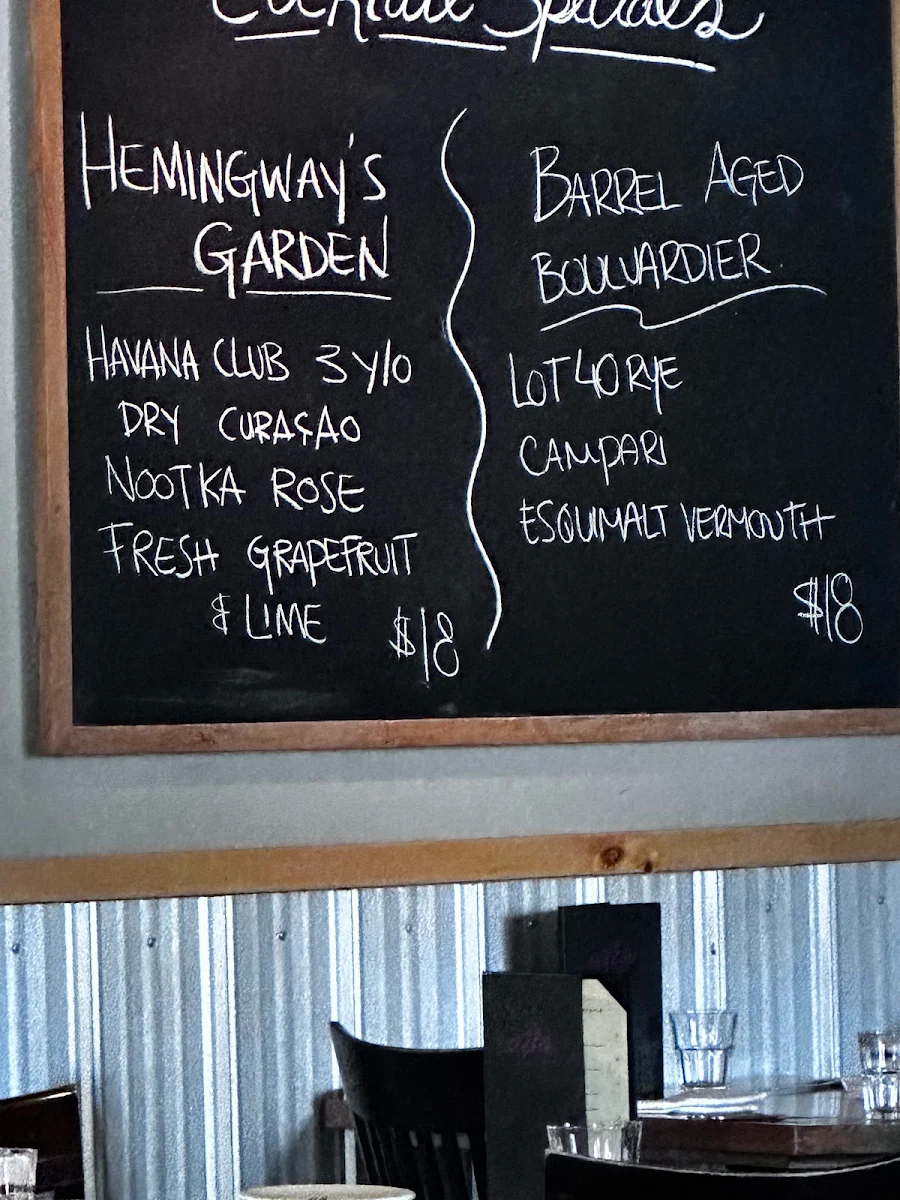 Cocktail Specials
HEMINGWAY'S
GARDEN
HAVANA CLUB 3 Y/O
DRY CURAÇAO
NOOTKA ROSE
FRESH GRAPEFRUIT
& LIME
$18
BARREL AGED
BOULVARDIER
LOT 40 RYE
CAMPARI
ESQUIMALT VERMOUTH
$18